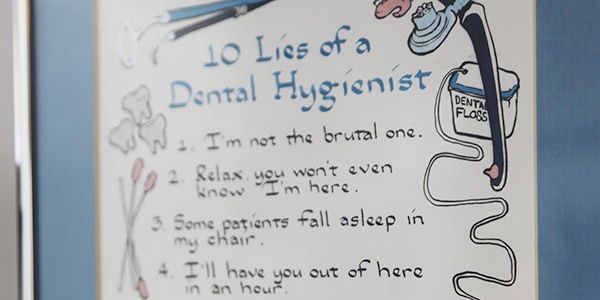 10 Lies of a
Dental Hygienist
DENTAL
FLOSS
1. I'm not the brutal one.
2. Relax, you won't even
know I'm here.
3. Some patients fall asleep in
my chair.
4. I'll have you out of here
in an hour.